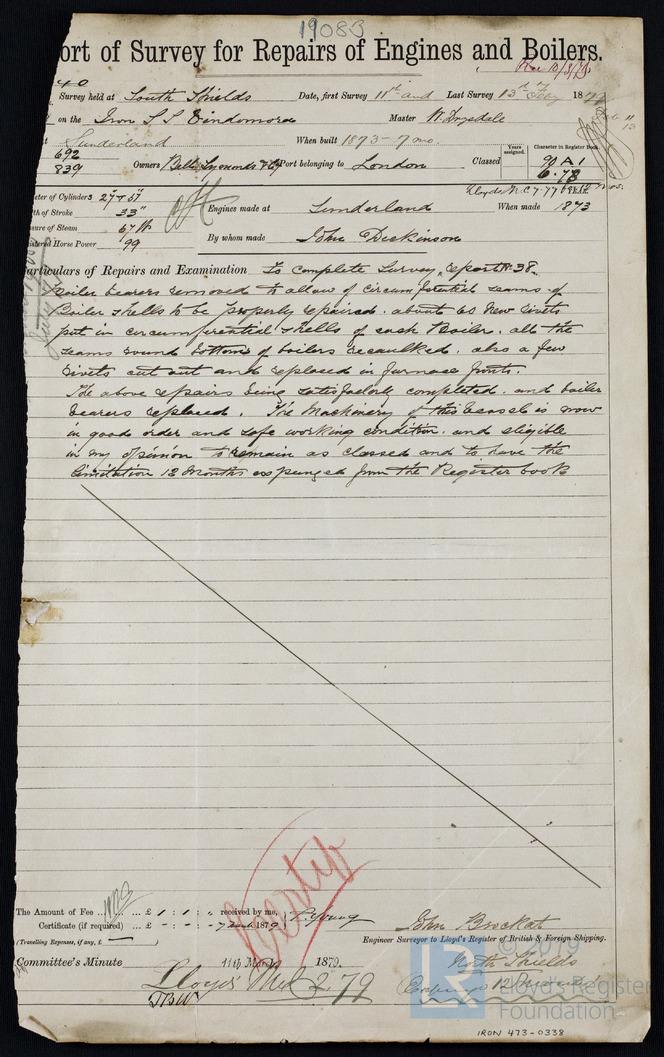 19083
ort of Survey for Repairs of Engines and Boilers.
40
Survey held at South Shields Date, first Survey 11th and Last Survey 13th Feby 1879
on the Iron S.S. Vindomora Master W. Drysdale
Sunderland When built 1873 - 7 mo.
692
839 Owners Bell Symonds & Co Port belonging to London Classed
Years assigned. Character in Register Book.
90 A 1
6.78
Lloyds M.C. 7.77
eter of Cylinders 27" & 51"
th of Stroke 33"
sure of Steam 67 lb
istered Horse Power 99
Engines made at Sunderland When made 1873
By whom made John Dickinson
articulars of Repairs and Examination To complete Survey, report No 38.
Boiler bearers removed to allow of circumferential seams of
Boiler shells to be properly repaired. about 60 New rivets
put in circumferential shells of each Boiler. all the
seams round bottoms of boilers recaulked. also a few
rivets cut out and replaced in furnace fronts.
The above repairs being satisfactorily completed. and boiler
bearers replaced. The Machinery of this vessel is now
in good order and safe working condition. and eligible
in my opinion to remain as classed and to have the
limitation 12 Months expunged from the Register book
The Amount of Fee ... £ 1 : 1 : " received by me,
Certificate (if required) ... £ - : - : - 7 March 1879 Young
(Travelling Expenses, if any, £ )
Certif
John Brockat
Engineer Surveyor to Lloyd's Register of British & Foreign Shipping.
North Shields
Committee's Minute 11th March 1879.
Lloyds' M.C. 2.79
© 2019
LR Lloyd's Register
Foundation
IRON 473-0338